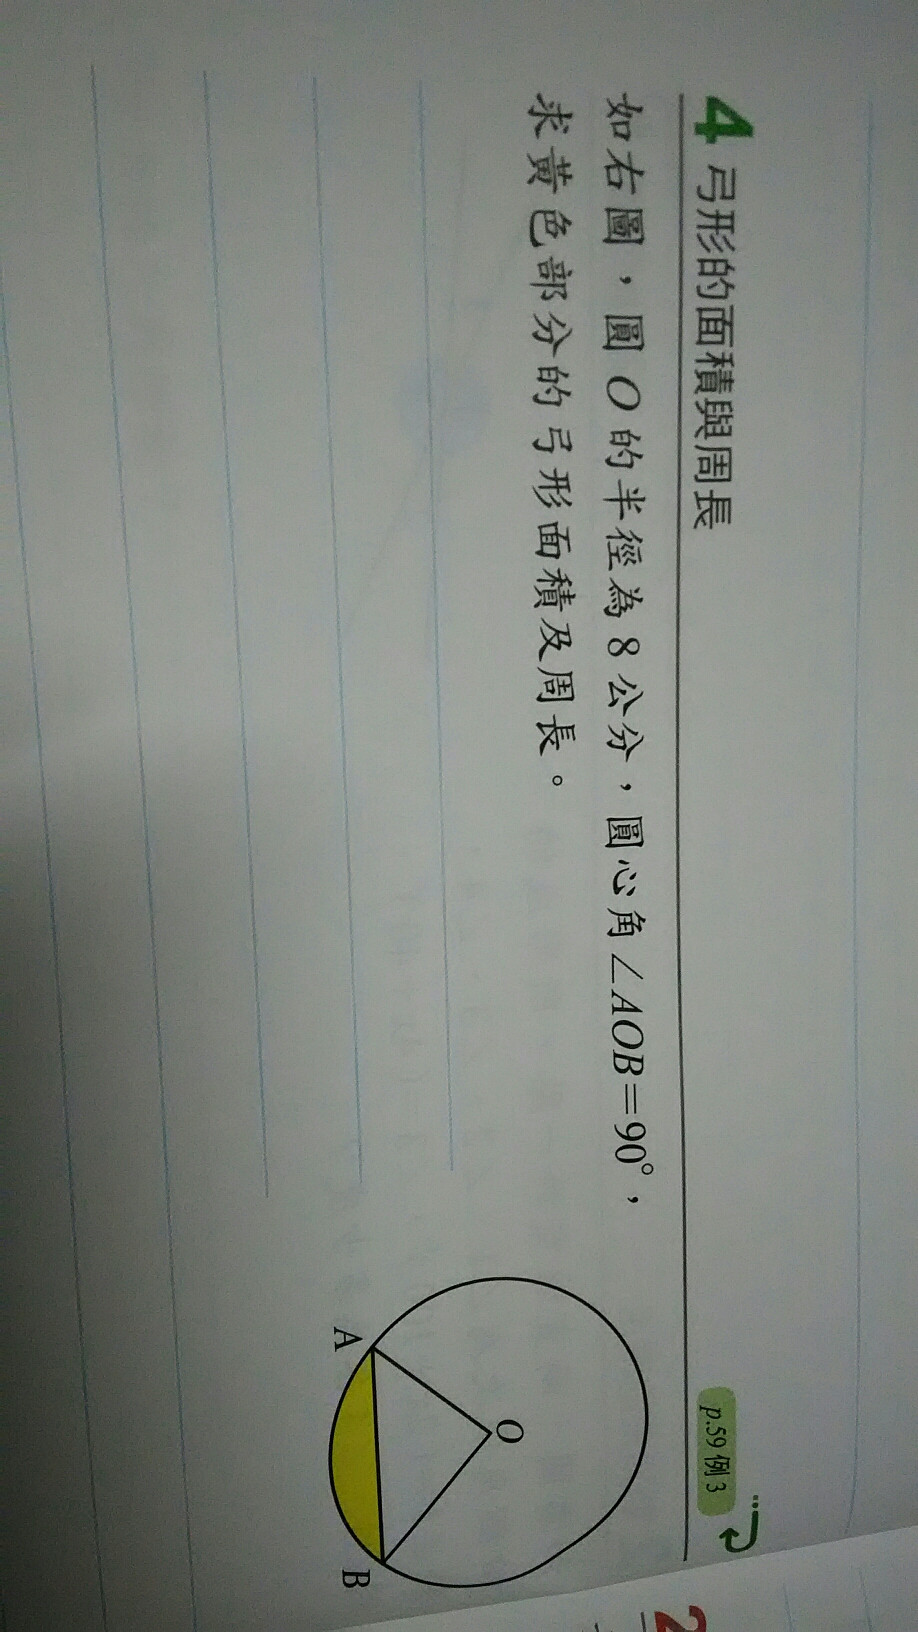 4 弓形的面積與周長
p.59 例 3
如右圖，圓 O 的半徑為 8 公分，圓心角∠AOB=90°，
求黃色部分的弓形面積及周長。
O
A
B
2